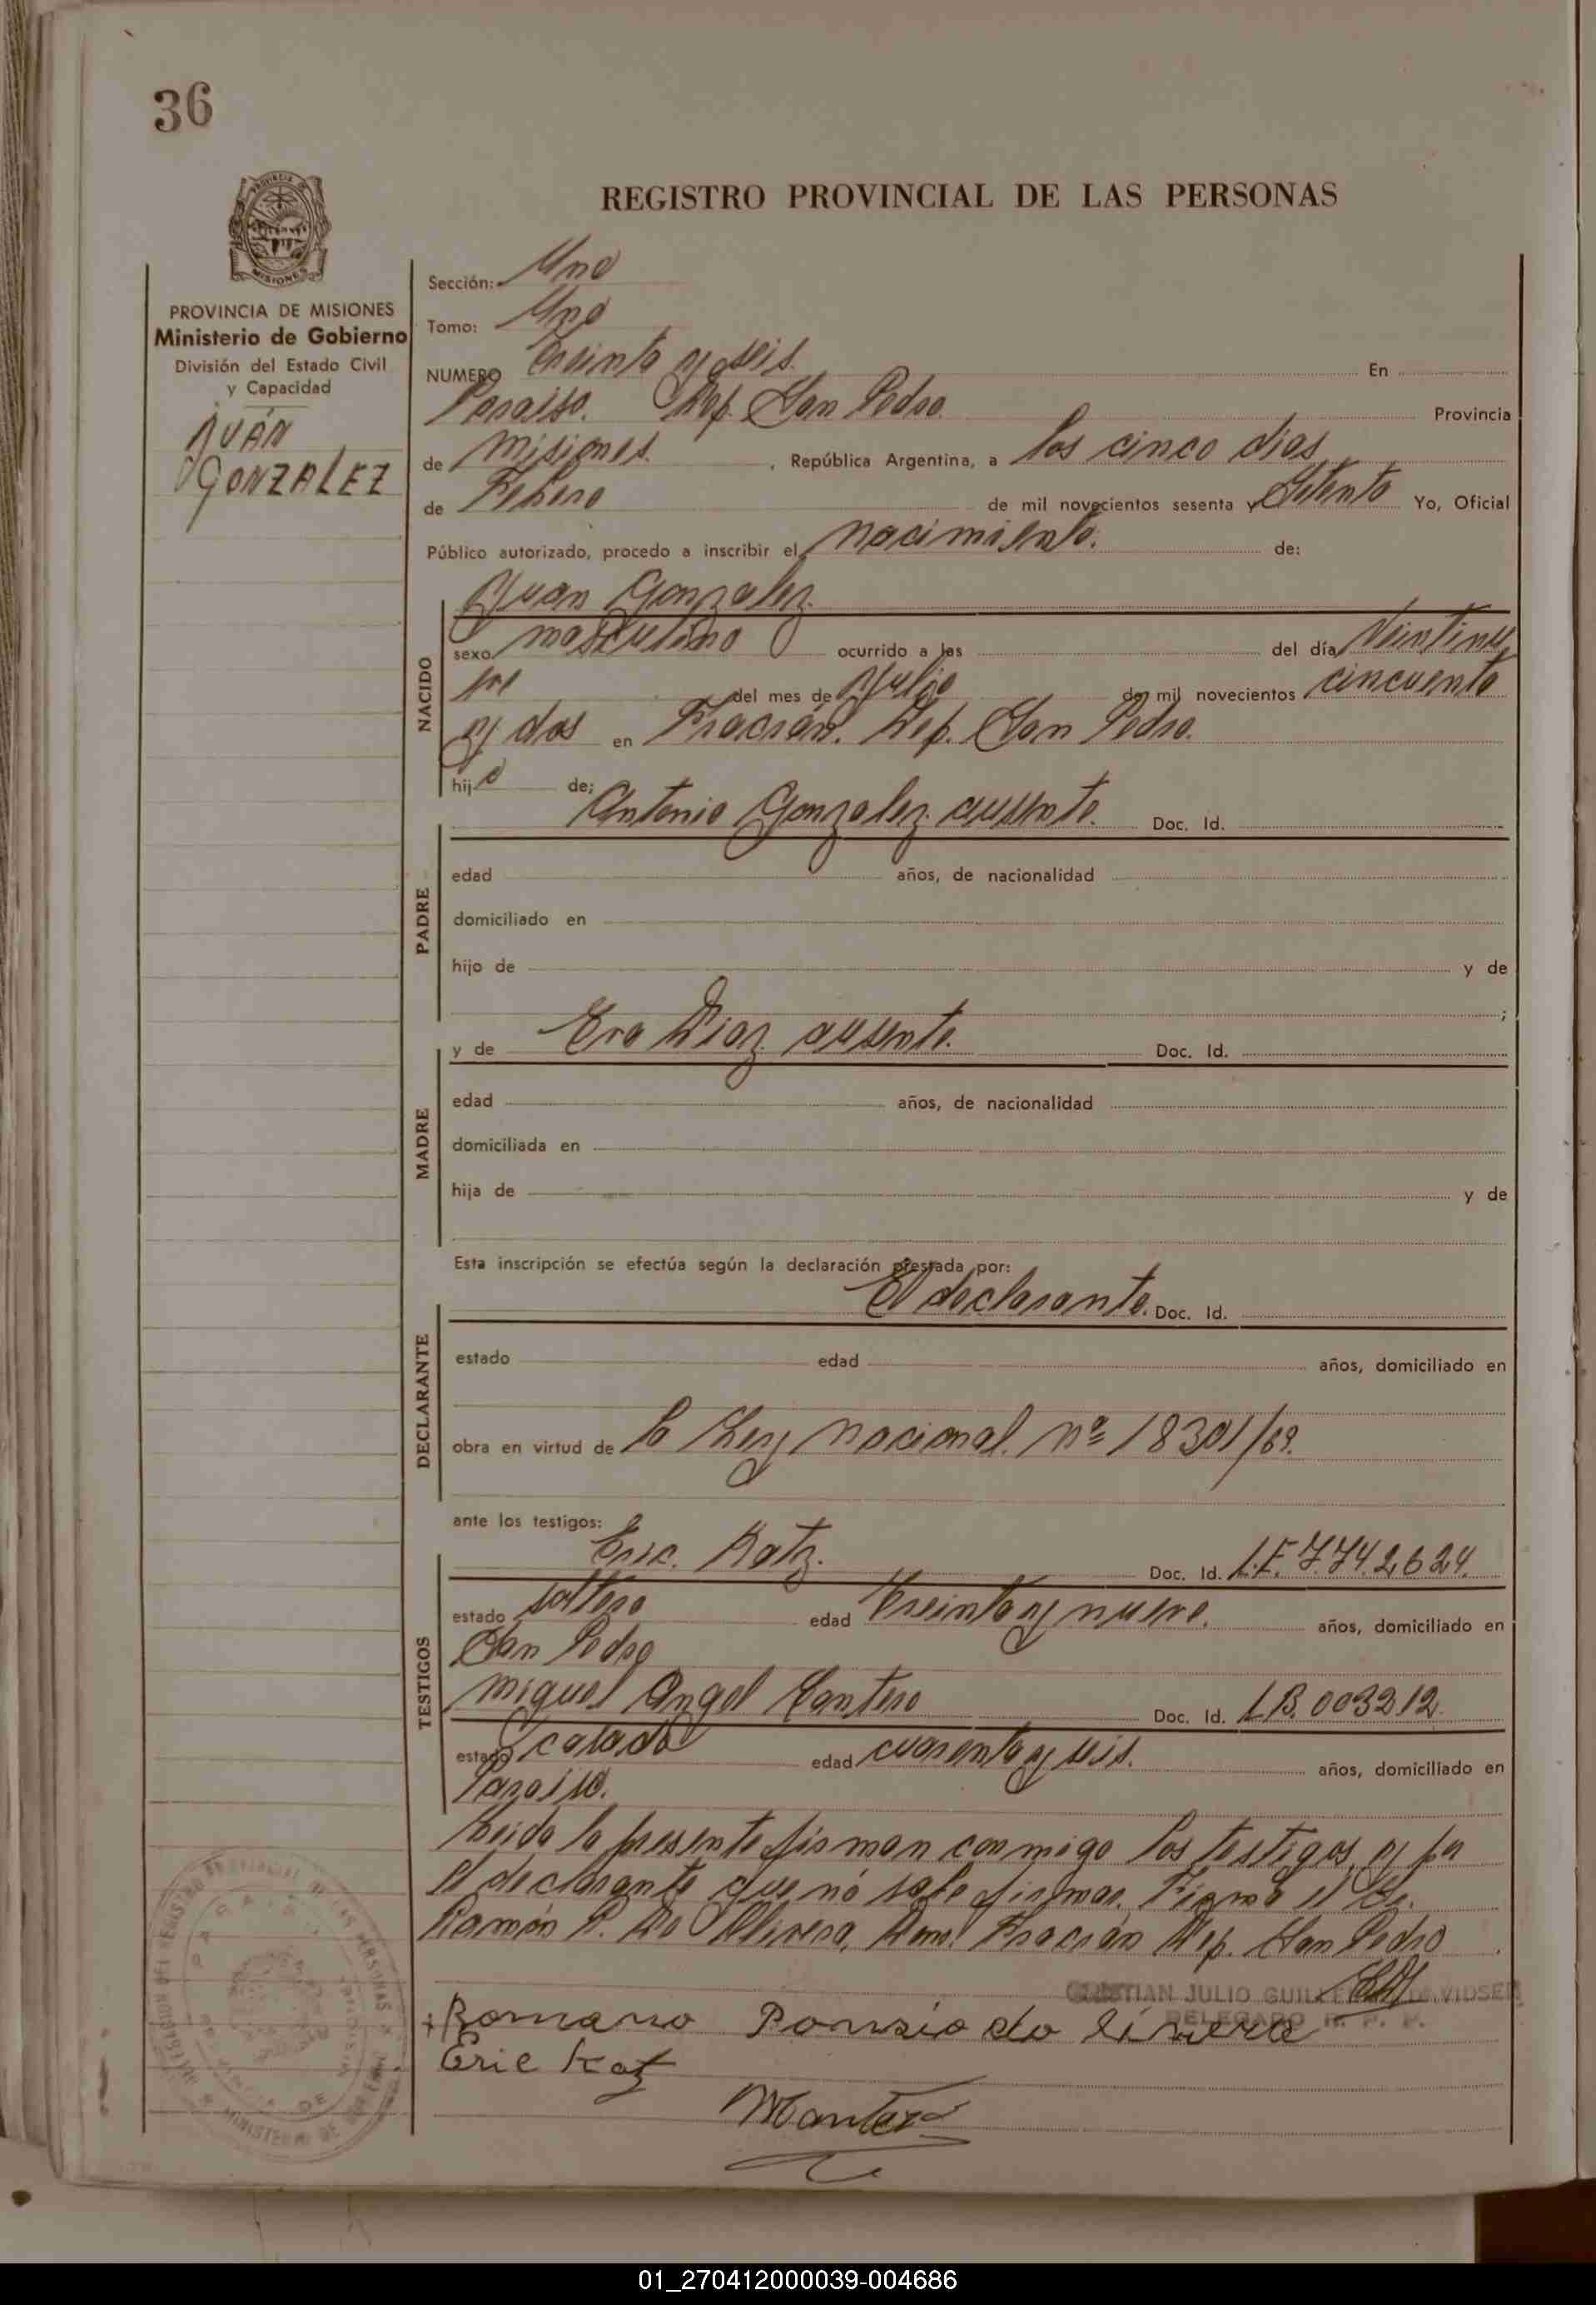 36
REGISTRO PROVINCIAL DE LAS PERSONAS
PROVINCIA DE MISIONES
Ministerio de Gobierno
División del Estado Civil
y Capacidad
JUÁN
GONZALEZ
Sección: Uno
Tomo: Uno
NUMERO Treinta y seis. En
Paraiso. Dep. San Pedro. Provincia
de Misiones. , República Argentina, a los cinco dias
de Febrero de mil novecientos sesenta y Setenta Yo, Oficial
Público autorizado, procedo a inscribir el nacimiento. de:
Juan Gonzalez.
NACIDO
sexo masculino ocurrido a las del día Veintinue
ve del mes de Julio de mil novecientos cincuenta
y dos en Fracrán. Dep. San Pedro.
hijo de:
Antonio Gonzalez ausente. Doc. Id.
PADRE
edad años, de nacionalidad
domiciliado en
hijo de y de
;
y de Eva Diaz ausente. Doc. Id.
MADRE
edad años, de nacionalidad
domiciliada en
hija de y de
Esta inscripción se efectúa según la declaración prestada por:
El declarante. Doc. Id.
DECLARANTE
estado edad años, domiciliado en
obra en virtud de la Ley nacional. nº 18301/69.
ante los testigos:
Eric. Katz. Doc. Id. L.E. 7.742.624.
TESTIGOS
estado soltero edad Treinta y nueve. años, domiciliado en
San Pedro
Miguel Angel Mantero Doc. Id. 003212.
estado casado edad cuarenta y seis. años, domiciliado en
Paraiso.
Leida la presente firman conmigo los testigos, y por
el declarante que no sabe firmar. Firma el Sr.
Ramón P. Do Olivera, Dom. Fracrán Dep. San Pedro
CRISTIAN JULIO GUILLERMO DAVIDSEN
DELEGADO R. P. P.
Romano Ponsio do
Eric Katz
Mantero
01_270412000039-004686